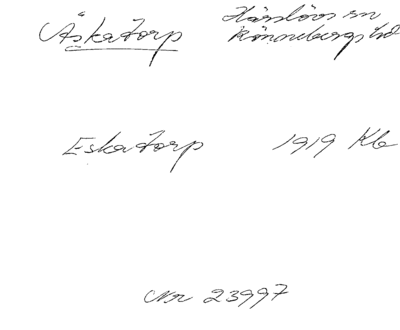 Äskatorp Härslövs sn
Rönnebergs hd
Eskatorp 1919 Kb
Nr 23997